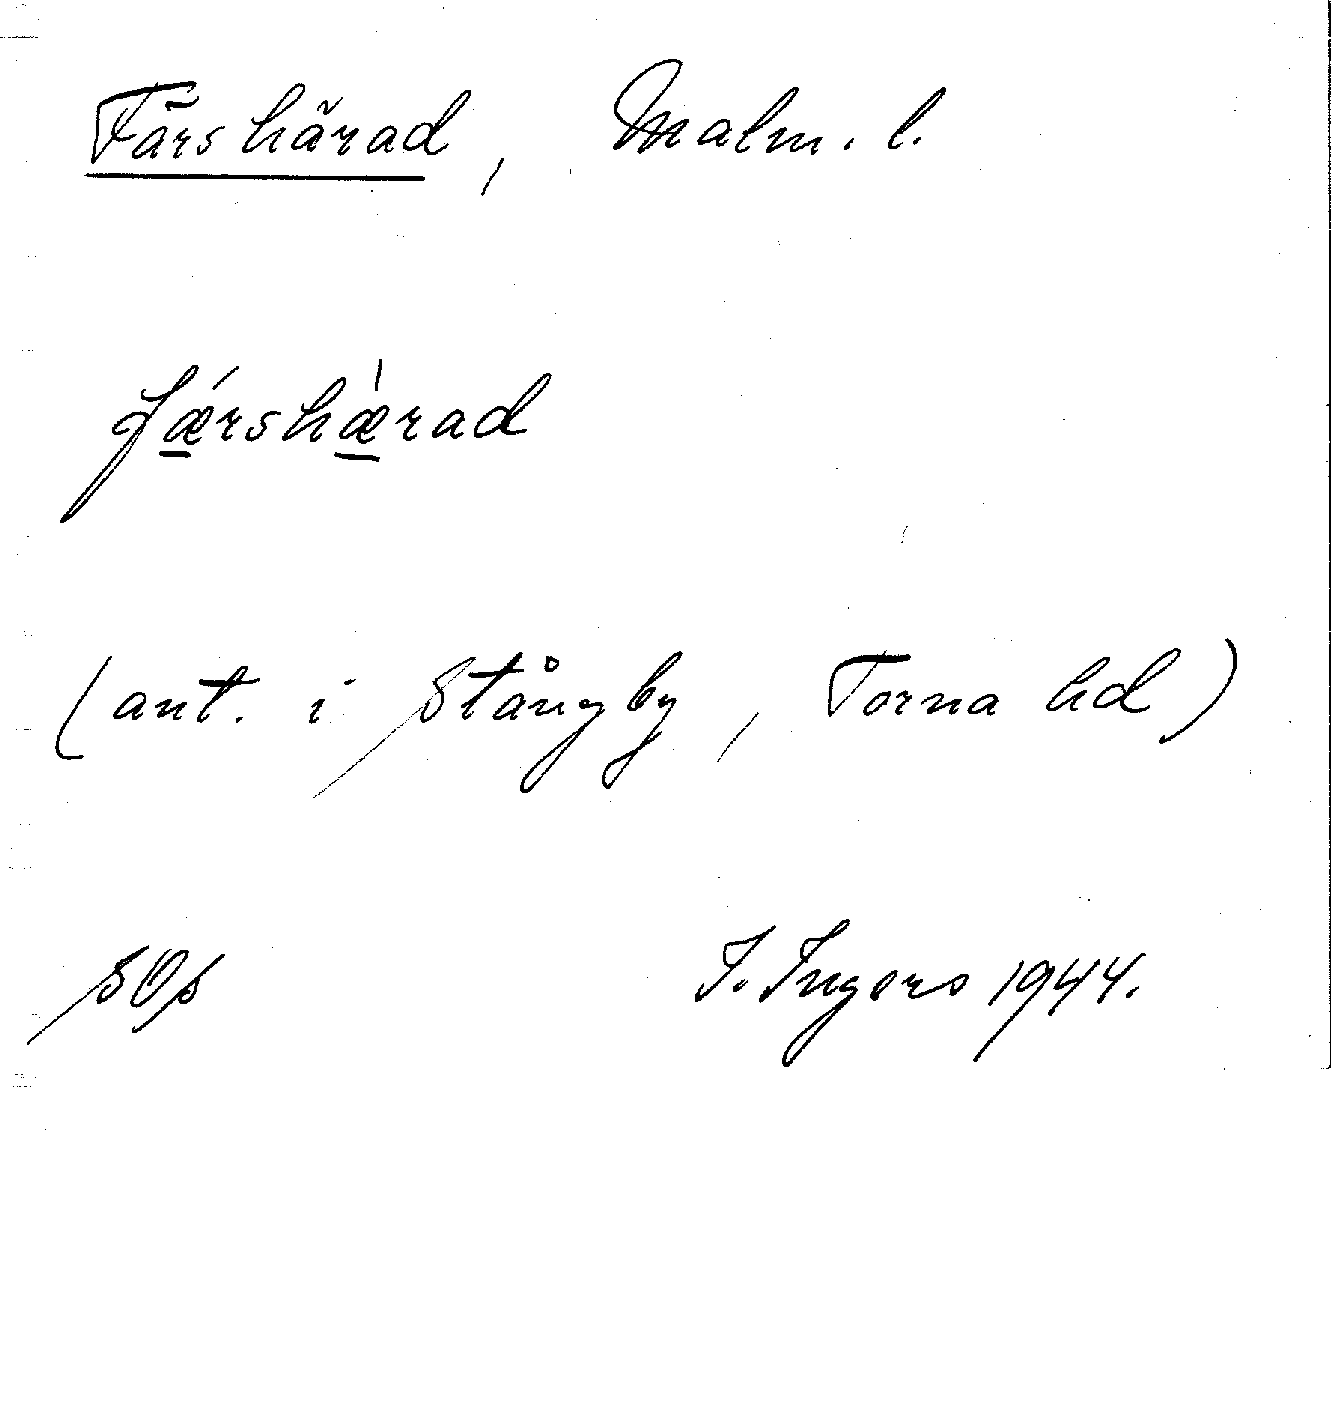 Färs härad, Malm. l.
fǽrshæ̀rad
(ant. i Stångby, Torna hd)
SOS I. Ingers 1944.